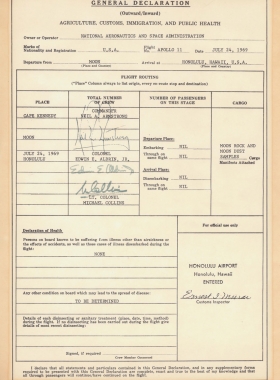 GENERAL DECLARATION
(Outward/Inward)
AGRICULTURE, CUSTOMS, IMMIGRATION, AND PUBLIC HEALTH
Owner or Operator NATIONAL AERONAUTICS AND SPACE ADMINISTRATION
Marks of Nationality and Registration U.S.A. Flight No. APOLLO 11 Date JULY 24, 1969
Departure from MOON Arrival at HONOLULU, HAWAII, U.S.A.
(Place and Country) (Place and Country)
FLIGHT ROUTING
("Place" Column always to list origin, every en-route stop and destination)
PLACE TOTAL NUMBER OF CREW NUMBER OF PASSENGERS ON THIS STAGE CARGO
CAPE KENNEDY COMMANDER NEIL A. ARMSTRONG
MOON
Departure Place:
Embarking NIL
Through on same flight NIL
JULY 24, 1969 HONOLULU COLONEL EDWIN E. ALDRIN, JR.
Arrival Place:
Disembarking NIL
Through on same flight NIL
MOON ROCK AND MOON DUST SAMPLES Cargo Manifests Attached
LT. COLONEL MICHAEL COLLINS
Declaration of Health
For official use only
Persons on board known to be suffering from illness other than airsickness or the effects of accidents, as well as those cases of illness disembarked during the flight:
NONE
HONOLULU AIRPORT
Honolulu, Hawaii
ENTERED
Customs Inspector
Any other condition on board which may lead to the spread of disease:
TO BE DETERMINED
Details of each disinsecting or sanitary treatment (place, date, time, method) during the flight. If no disinsecting has been carried out during the flight give details of most recent disinsecting:
Signed, if required
Crew Member Concerned
I declare that all statements and particulars contained in this General Declaration, and in any supplementary forms required to be presented with this General Declaration are complete, exact and true to the best of my knowledge and that of through passengers will continue/have continued on the flight.